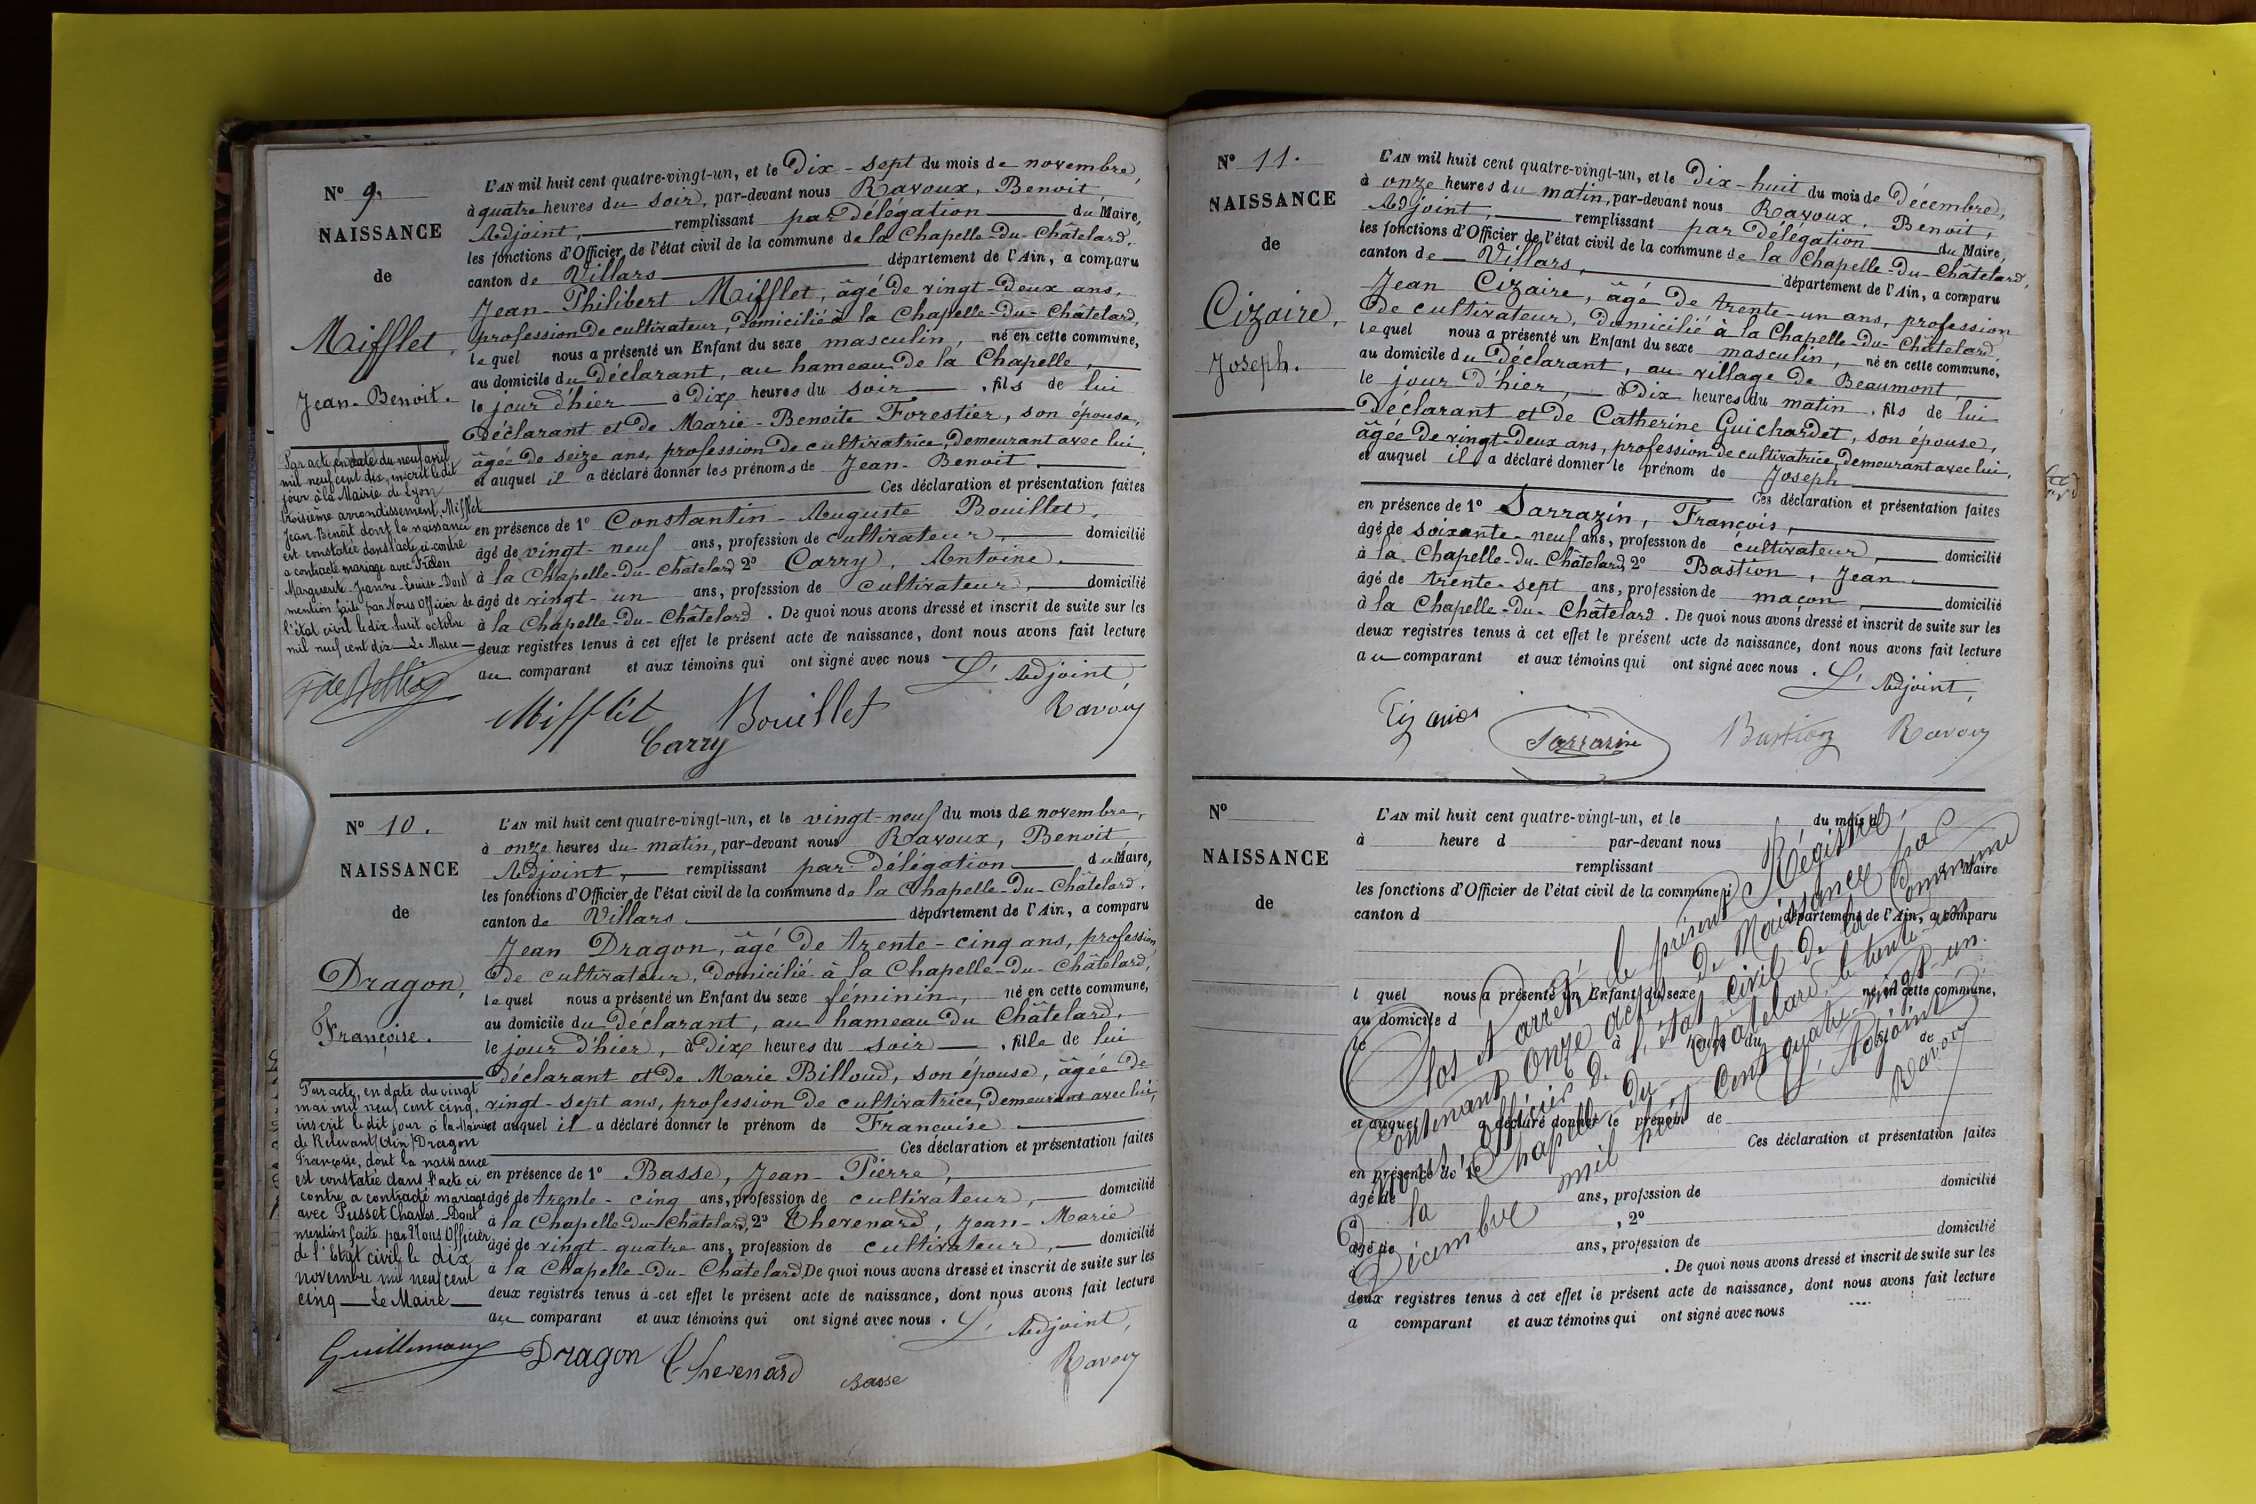 N° 9.
NAISSANCE
de
Mifflet,
Jean-Benoit.
Par acte en date du neuf avril
mil neuf cent dix, inscrit le dit
jour à la Mairie de Lyon
troisième arrondissement, Mifflet
Jean-Benoît dont la naissance
est constatée dans l'acte ci-contre
a contracté mariage avec
Marguerite-Jeanne-Louise. Dont
mention faite par Nous Officier de
l'état civil le dix huit octobre
mil neuf cent dix — Le Maire —
L'AN mil huit cent quatre-vingt-un, et le Dix-sept du mois de novembre,
à quatre heures du soir, par-devant nous Ravoux, Benoit
Adjoint, remplissant par délégation du Maire,
les fonctions d'Officier de l'état civil de la commune de la Chapelle-du-Châtelard,
canton de Villars département de l'Ain, a comparu
Jean-Philibert Mifflet, âgé de vingt-deux ans,
profession de cultivateur, domicilié à la Chapelle-du-Châtelard,
lequel nous a présenté un Enfant du sexe masculin, né en cette commune,
au domicile du déclarant, au hameau de la Chapelle,
le jour d'hier à dix heures du soir, fils de lui
déclarant et de Marie-Benoite Forestier, son épouse,
âgée de seize ans, profession de cultivatrice, demeurant avec lui,
et auquel il a déclaré donner les prénoms de Jean-Benoit.
Ces déclaration et présentation faites
en présence de 1° Constantin-Auguste Bouillet,
âgé de vingt-neuf ans, profession de cultivateur, domicilié
à la Chapelle-du-Châtelard, 2° Carry, Antoine.
âgé de vingt-un ans, profession de cultivateur, domicilié
à la Chapelle-du-Châtelard. De quoi nous avons dressé et inscrit de suite sur les
deux registres tenus à cet effet le présent acte de naissance, dont nous avons fait lecture
au comparant et aux témoins qui ont signé avec nous
L'Adjoint,
Mifflet Bouillet Ravoux
Carry
N° 10.
NAISSANCE
de
Dragon,
Françoise.
Par acte, en date du vingt
mai mil neuf cent cinq,
inscrit le dit jour à la Mairie
de Relevant (Ain) Dragon
Françoise, dont la naissance
est constatée dans l'acte ci
contre a contracté mariage
avec Pusset Charles. Dont
mention faite par Nous Officier
de l'Etat civil le dix
novembre mil neuf cent
cinq — Le Maire —
Guillemaux
L'AN mil huit cent quatre-vingt-un, et le vingt-neuf du mois de novembre,
à onze heures du matin, par-devant nous Ravoux, Benoit
Adjoint, remplissant par délégation du Maire,
les fonctions d'Officier de l'état civil de la commune de la Chapelle-du-Châtelard,
canton de Villars département de l'Ain, a comparu
Jean Dragon, âgé de trente-cinq ans, profession
de cultivateur, domicilié à la Chapelle-du-Châtelard,
lequel nous a présenté un Enfant du sexe féminin, né en cette commune,
au domicile du déclarant, au hameau du Châtelard,
le jour d'hier, à dix heures du soir, fille de lui
déclarant et de Marie Billoud, son épouse, âgée de
vingt-sept ans, profession de cultivatrice, demeurant avec lui,
et auquel il a déclaré donner le prénom de Françoise
Ces déclaration et présentation faites
en présence de 1° Basse, Jean-Pierre,
âgé de trente-cinq ans, profession de cultivateur, domicilié
à la Chapelle-du-Châtelard, 2° Chevenard, Jean-Marie
âgé de vingt-quatre ans, profession de cultivateur, domicilié
à la Chapelle-du-Châtelard. De quoi nous avons dressé et inscrit de suite sur les
deux registres tenus à cet effet le présent acte de naissance, dont nous avons fait lecture
au comparant et aux témoins qui ont signé avec nous.
L'Adjoint,
Dragon Chevenard Basse Ravoux
N° 11.
NAISSANCE
de
Cizaire,
Joseph.
L'AN mil huit cent quatre-vingt-un, et le Dix-huit du mois de Décembre,
à onze heures du matin, par-devant nous Ravoux, Benoit,
Adjoint, remplissant par délégation du Maire,
les fonctions d'Officier de l'état civil de la commune de la Chapelle-du-Châtelard,
canton de Villars, département de l'Ain, a comparu
Jean Cizaire, âgé de trente-un ans, profession
de cultivateur, domicilié à la Chapelle-du-Châtelard,
lequel nous a présenté un Enfant du sexe masculin, né en cette commune,
au domicile du déclarant, au village de Beaumont,
le jour d'hier, à dix heures du matin, fils de lui
déclarant et de Catherine Guichardet, son épouse,
âgée de vingt-deux ans, profession de cultivatrice, demeurant avec lui,
et auquel il a déclaré donner le prénom de Joseph
Ces déclaration et présentation faites
en présence de 1° Sarrazin, François,
âgé de soixante-neuf ans, profession de cultivateur, domicilié
à la Chapelle-du-Châtelard, 2° Bastion, Jean
âgé de trente-sept ans, profession de maçon, domicilié
à la Chapelle-du-Châtelard. De quoi nous avons dressé et inscrit de suite sur les
deux registres tenus à cet effet le présent acte de naissance, dont nous avons fait lecture
au comparant et aux témoins qui ont signé avec nous.
L'Adjoint,
Sarrazin Bastion Ravoux
N°
NAISSANCE
de
L'AN mil huit cent quatre-vingt-un, et le du mois d
à heure d par-devant nous
remplissant Maire
les fonctions d'Officier de l'état civil de la commune d
canton d département de l'Ain, a comparu
l quel nous a présenté un Enfant du sexe né en cette commune,
au domicile d
le à heure du
et auquel a déclaré donner le prénom de
Ces déclaration et présentation faites
en présence de 1°
âgé de ans, profession de domicilié
à , 2°
âgé de ans, profession de domicilié
à . De quoi nous avons dressé et inscrit de suite sur les
deux registres tenus à cet effet le présent acte de naissance, dont nous avons fait lecture
a comparant et aux témoins qui ont signé avec nous
Clos et arrêté le présent Régistre,
contenant onze actes de Naissance par
nous Officier de l'état civil de la Commune
de la Chapelle-du-Châtelard, le trente-un
Décembre mil huit cent quatre-vingt-un.
L'Adjoint
Ravoux